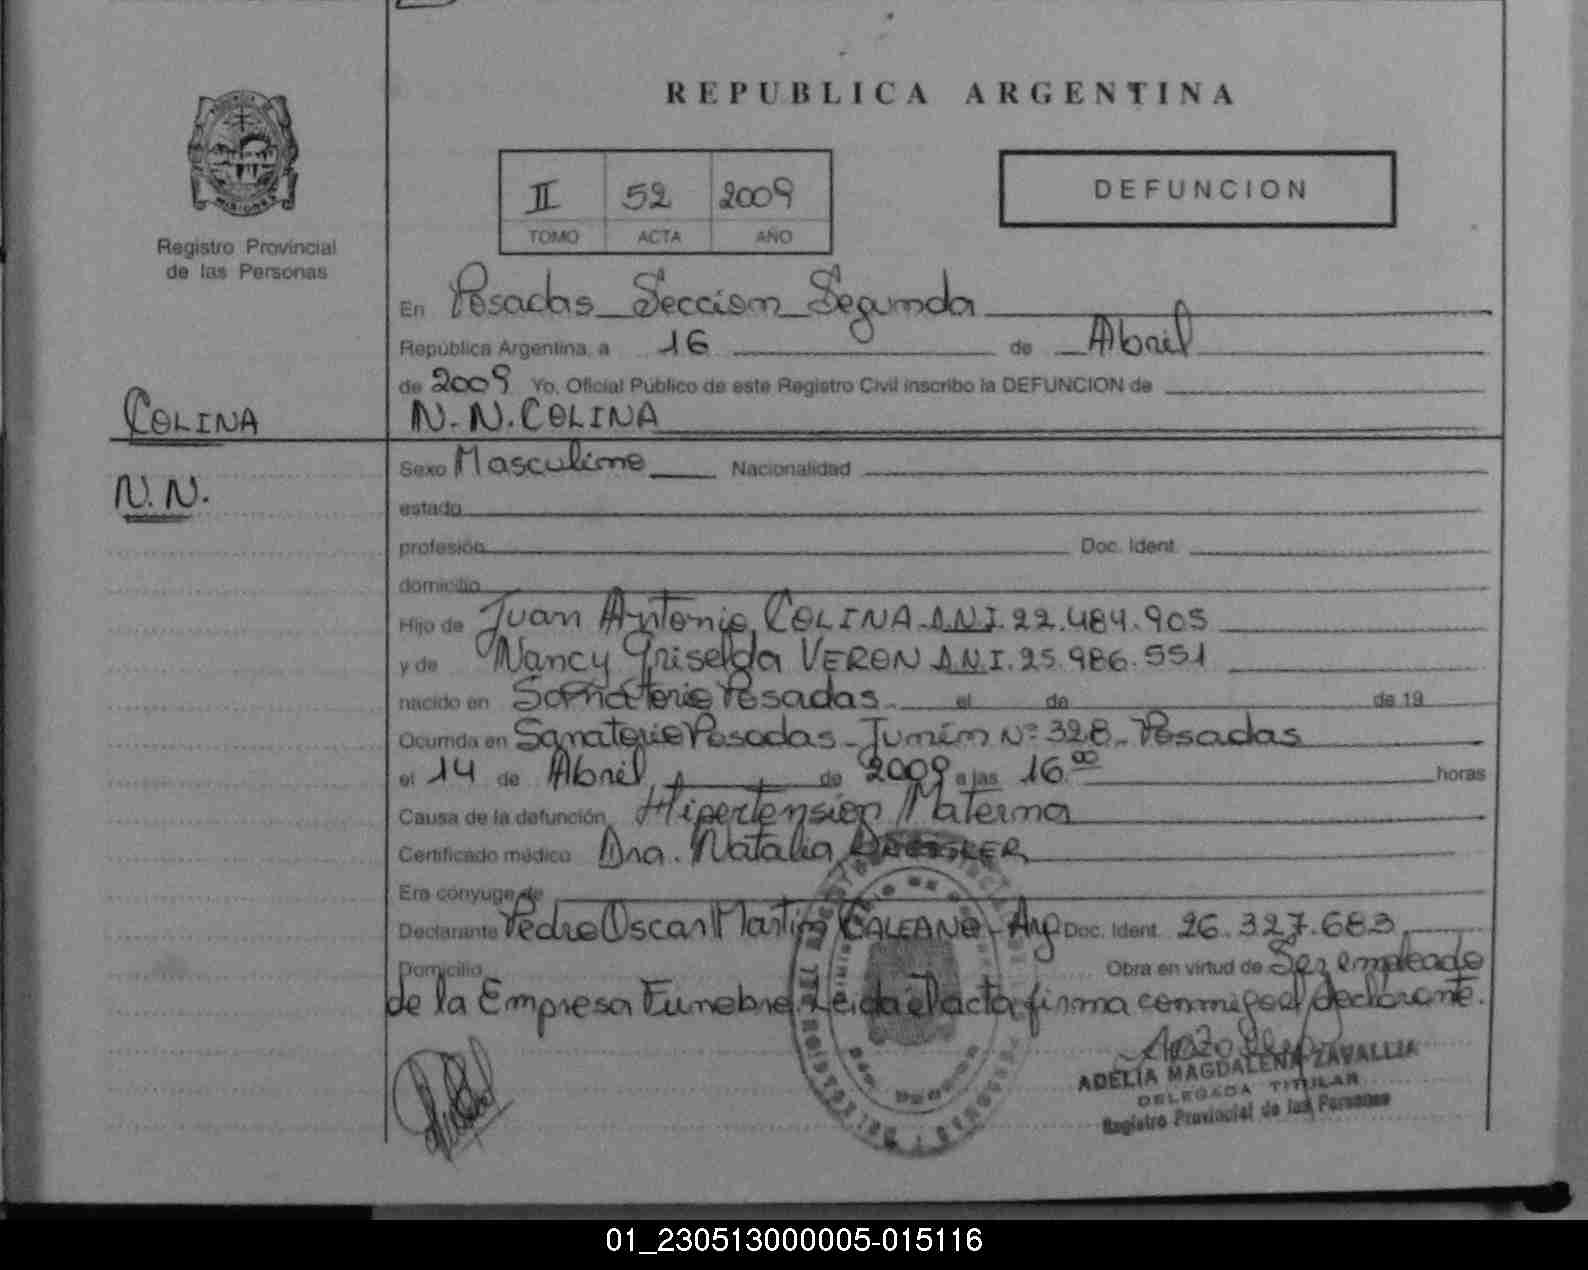 REPUBLICA ARGENTINA
II 52 2009
TOMO ACTA AÑO
DEFUNCION
Registro Provincial
de las Personas
COLINA
N.N.
En Posadas Seccion Segunda
República Argentina, a 16 de Abril
de 2009 Yo, Oficial Público de este Registro Civil inscribo la DEFUNCION de
N. N. COLINA
Sexo Masculino Nacionalidad
estado
profesión Doc. Ident.
domicilio
Hijo de Juan Antonio COLINA D.N.I. 22.484.905
y de Nancy Griselda VERON D.N.I. 25.986.551
nacido en Sanatorio Posadas el de de 19
Ocurrida en Sanatorio Posadas - Junín Nº 328 - Posadas
el 14 de Abril de 2009 a las 16.00 horas
Causa de la defunción Hipertensión Materna
Certificado médico Dra. Natalia
Era cónyuge de
Declarante Pedro Oscar Martin GALEANO - Arg Doc. Ident. 26.327.683
Domicilio Obra en virtud de Ser empleado
de la Empresa Funebre. Leida el acta firma conmigo el declarante.
ADELIA MAGDALENA ZAVALLIA
DELEGADA TITULAR
Registro Provincial de las Personas
01_230513000005-015116